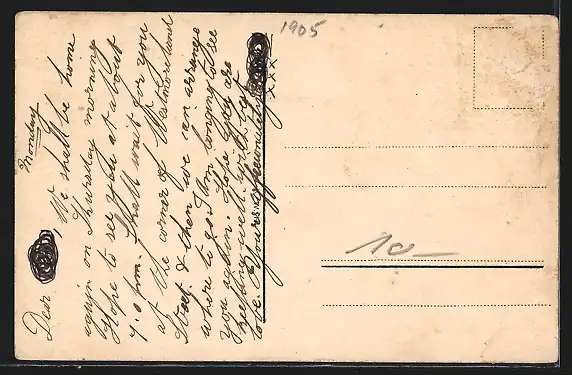 1905
Monday
Dear , We shall be home
again on Thursday morning
Hope to see you at about
7.0 p.m. I shall wait for you
at the corner of Westmoreland
Road & then we can arrange
where to go. I am longing to see
you again. Hope you are
keeping well. With best
love. Yours affectionately
xxx
10 —